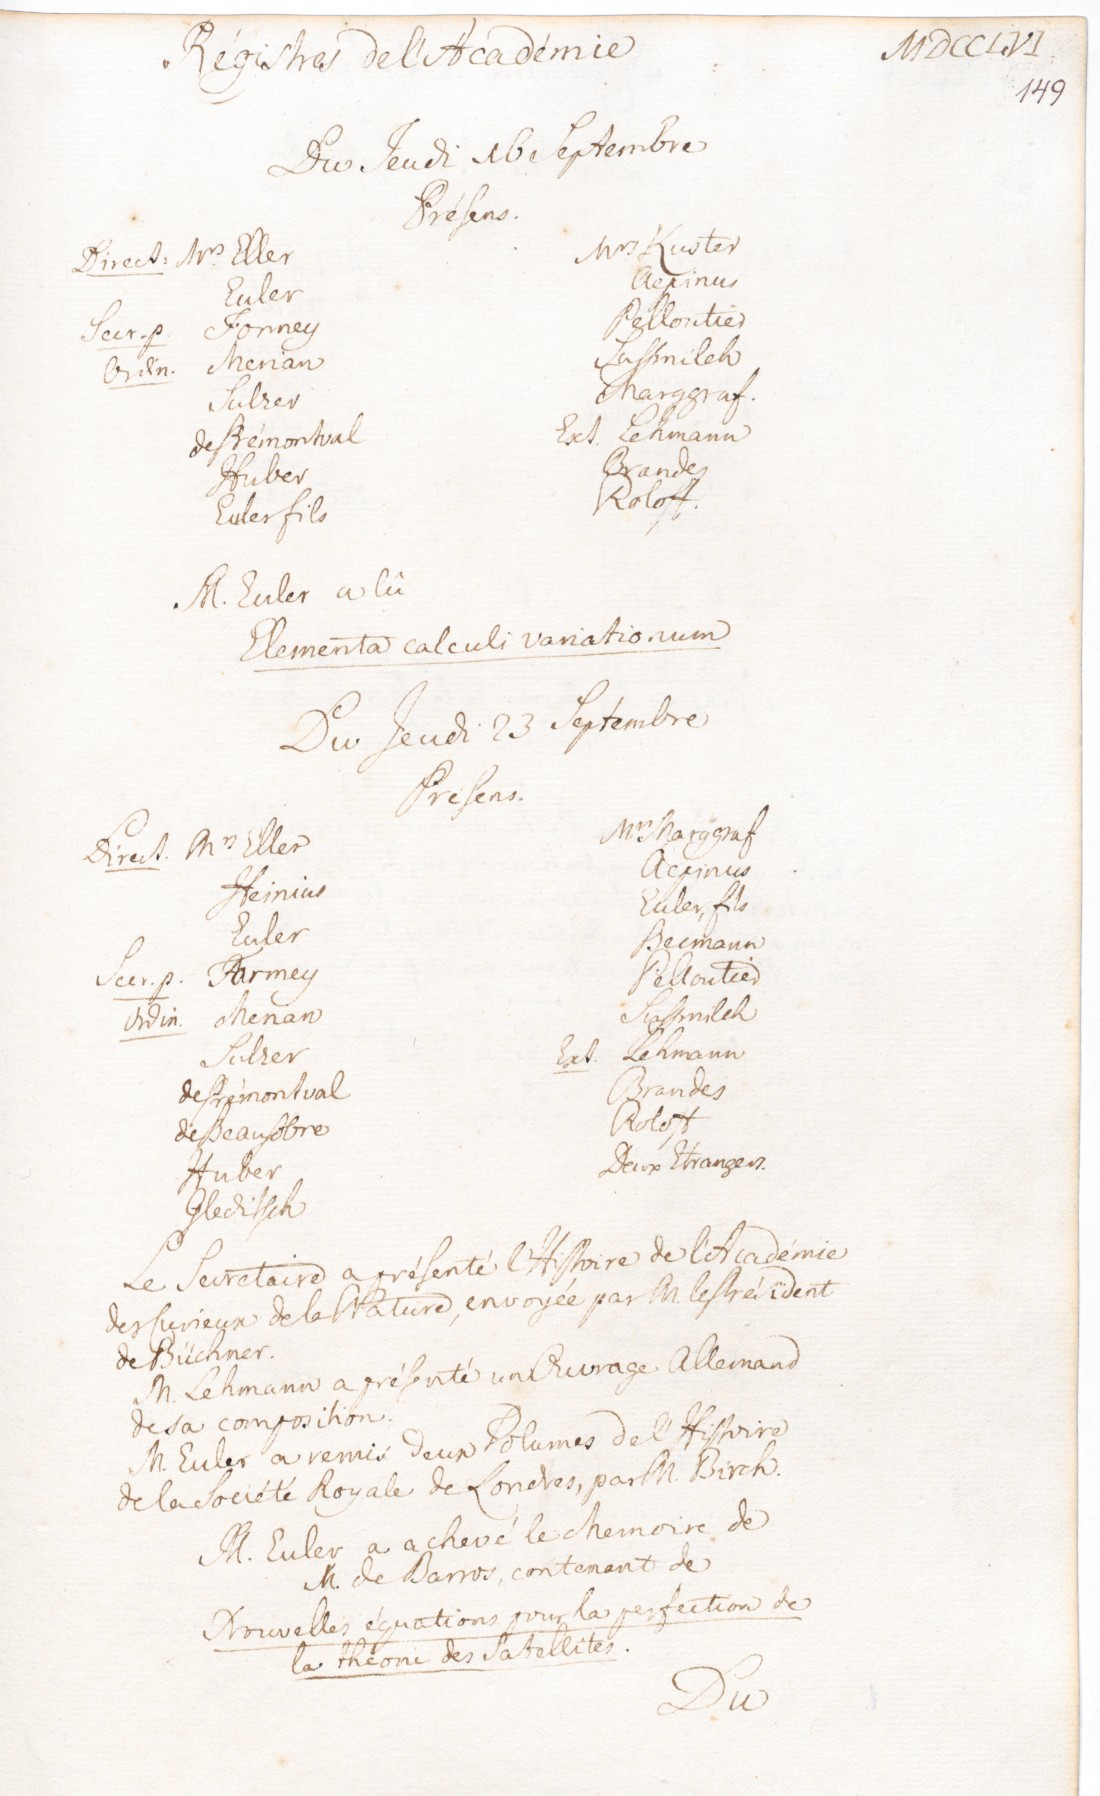 Régistres de l'Académie
MDCCLVI
149
Du Jeudi 16 Septembre
Présens.
Direct: Mrs Eller
Euler
Secr. p. Formey
Ordin. Merian
Sulzer
de Prémontval
Huber
Euler fils
Mrs Kuster
Aepinus
Pelloutier
Sussmilch
Marggraf.
Ext. Lehmann
Brandes
Roloff.
M. Euler a lû
Elementa calculi variationum
Du Jeudi 23 Septembre
Présens.
Direct. Mrs Eller
Heinius
Euler
Secr. p. Formey
Ordin. Merian
Sulzer
de Prémontval
de Beausobre
Huber
Gleditsch
Mrs Marggraf
Aepinus
Euler, fils
Becmann
Pelloutier
Sussmilch
Ext. Lehmann
Brandes
Roloff
Deux Etrangers.
Le Secretaire a présenté l'Histoire de l'Académie
des Curieux de la Nature, envoyée par M. le Président
de Büchner.
M. Lehmann a présenté un Ouvrage Allemand
de sa composition.
M. Euler a remis deux Volumes de l'Histoire
de la Société Royale de Londres, par M. Birch.
M. Euler a achevé le Memoire de
M. de Barros, contenant de
Nouvelles équations pour la perfection de
la théorie des Satellites.
Du